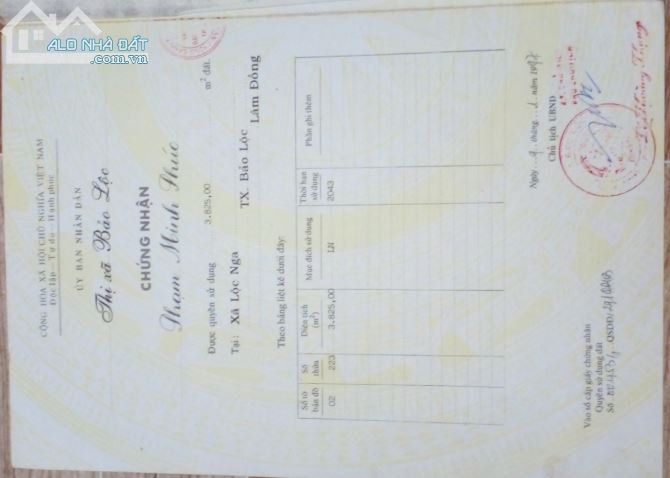 ALO NHÀ ĐẤT
.com.vn
CỘNG HÒA XÃ HỘI CHỦ NGHĨA VIỆT NAM
Độc lập - Tự do - Hạnh phúc
ỦY BAN NHÂN DÂN
Thị xã Bảo Lộc
CHỨNG NHẬN
Phạm Minh Phúc
Được quyền sử dụng 3.825,00 m² đất.
Tại: Xã Lộc Nga TX. Bảo Lộc Lâm Đồng
Theo bảng liệt kê dưới đây:
Số tờ bản đồ Số thửa Diện tích (m²) Mục đích sử dụng Thời hạn sử dụng Phần ghi thêm
02 223 3.825,00 LN 2043
Ngày 9 tháng năm
Chủ tịch UBND
Vào sổ cấp giấy chứng nhận
Quyền sử dụng đất
Số QSDĐ/